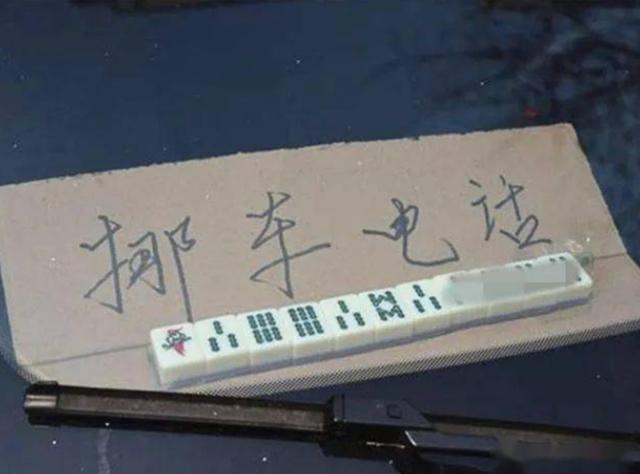 挪车电话